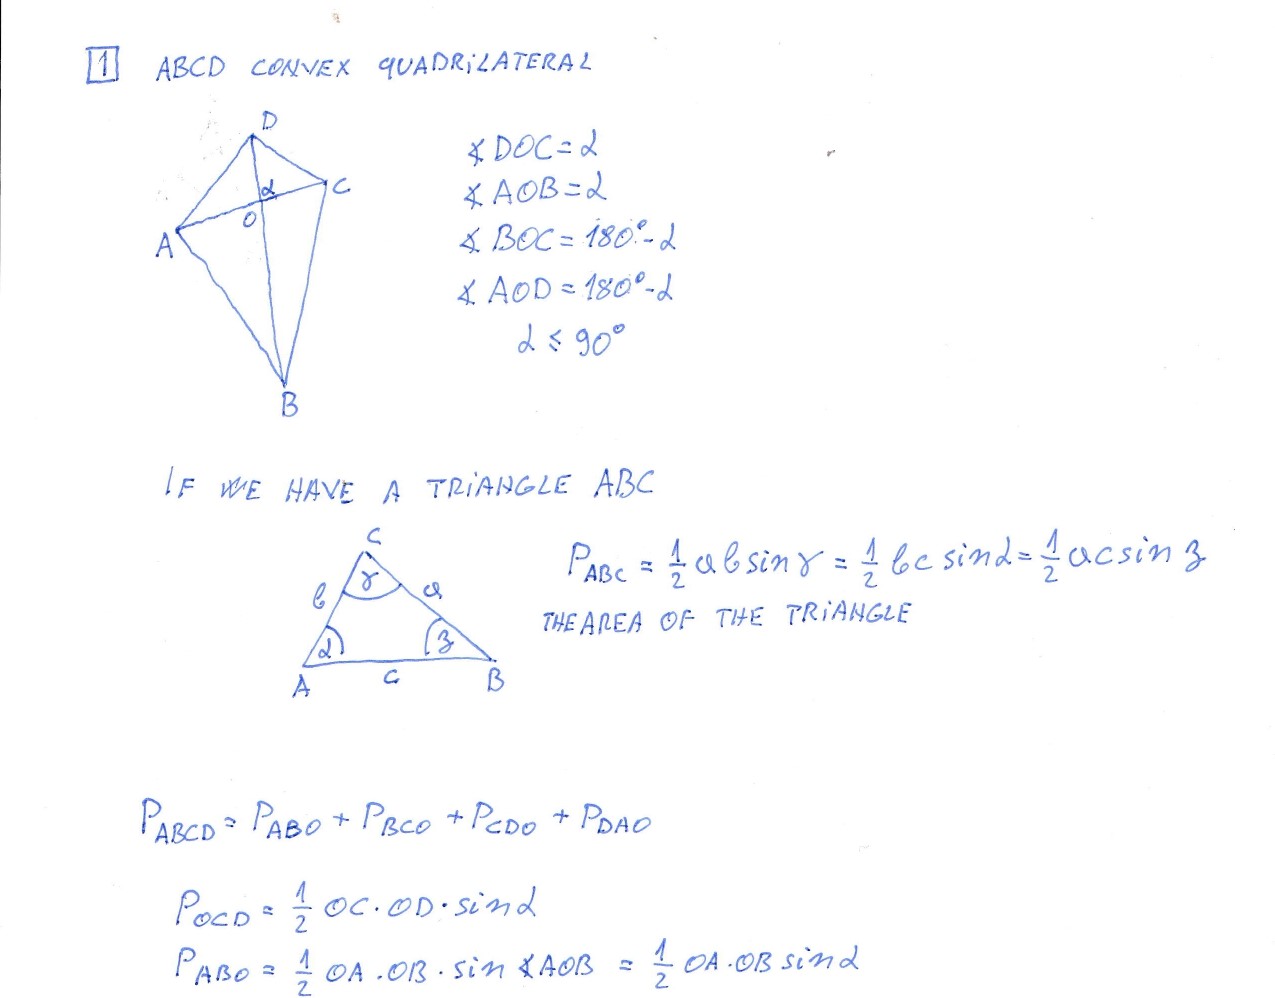 1 ABCD CONVEX QUADRILATERAL
D
α
C
O
A
B
∡DOC=α
∡AOB=α
∡BOC=180°-α
∡AOD=180°-α
α≤90°
IF WE HAVE A TRIANGLE ABC
C
γ
b
a
α
β
A
c
B
P_ABC = 1/2 ab sin γ = 1/2 bc sin α = 1/2 ac sin β
THE AREA OF THE TRIANGLE
P_ABCD = P_ABO + P_BCO + P_CDO + P_DAO
P_OCD = 1/2 OC·OD·sin α
P_ABO = 1/2 OA·OB·sin ∡AOB = 1/2 OA·OB sin α